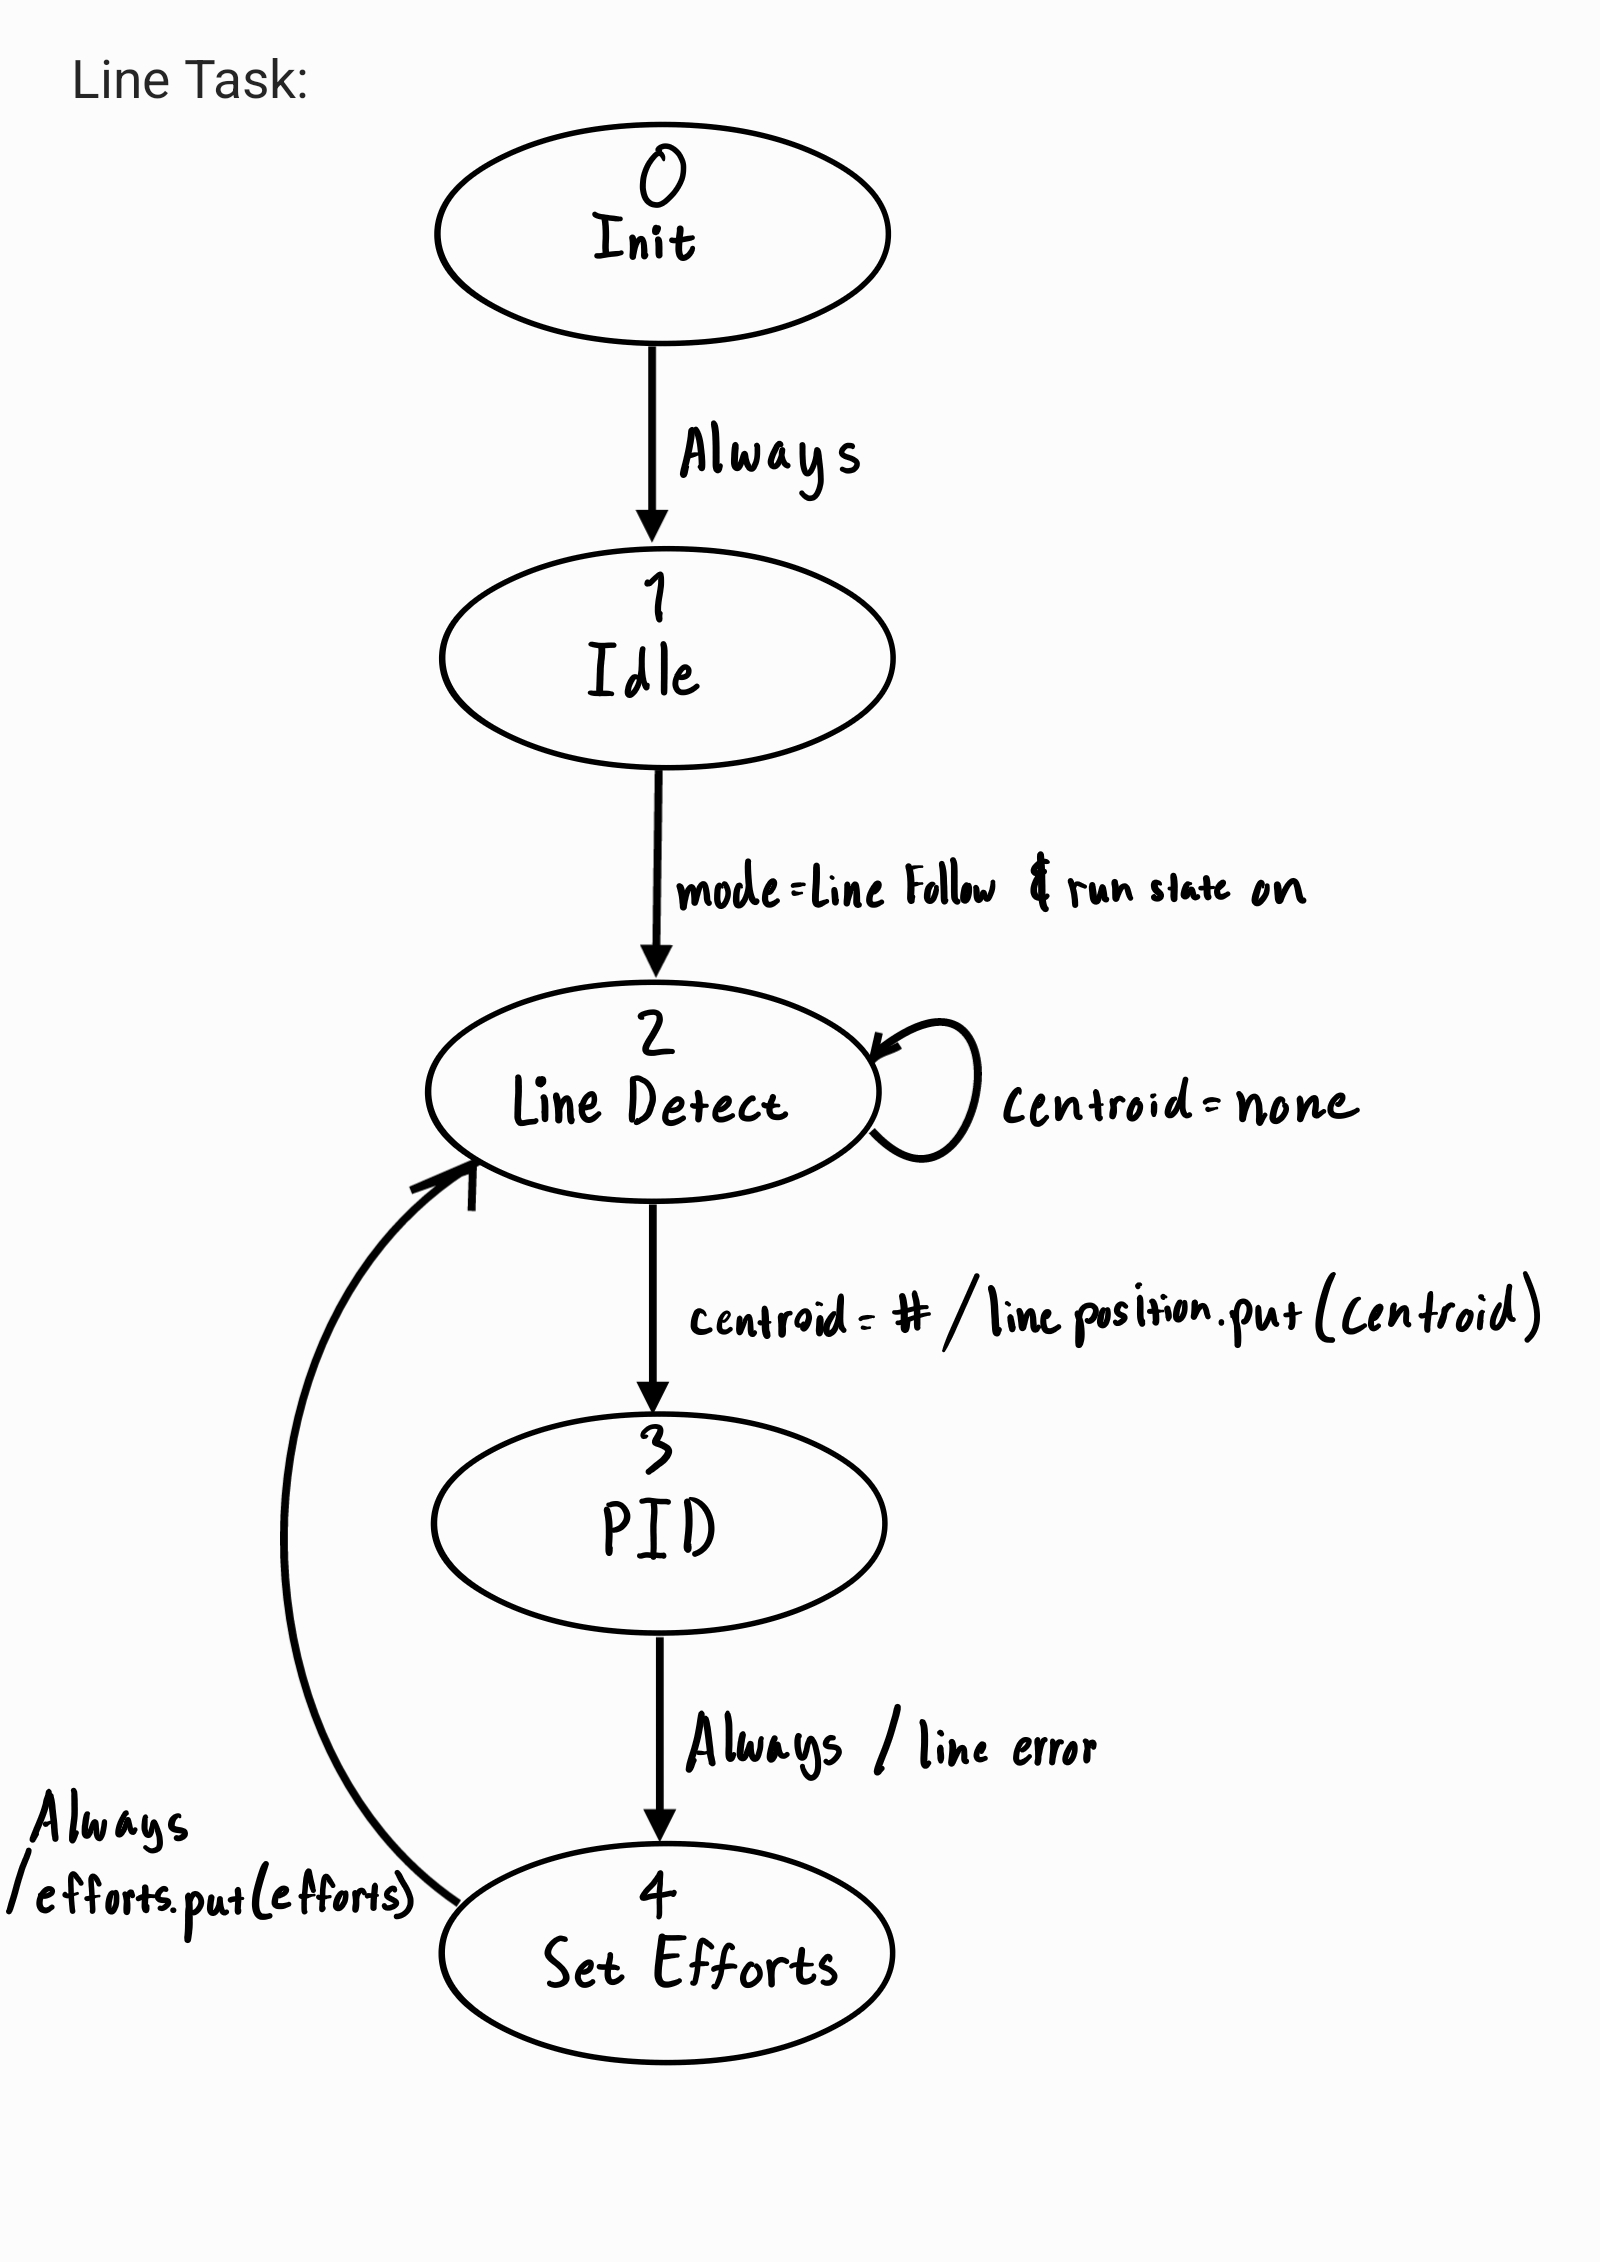 Line Task:
0
Init
Always
1
Idle
mode=Line Follow & run state on
2
Line Detect
centroid=none
centroid=#/line position.put(centroid)
3
PID
Always / line error
Always
/efforts.put(efforts)
4
Set Efforts